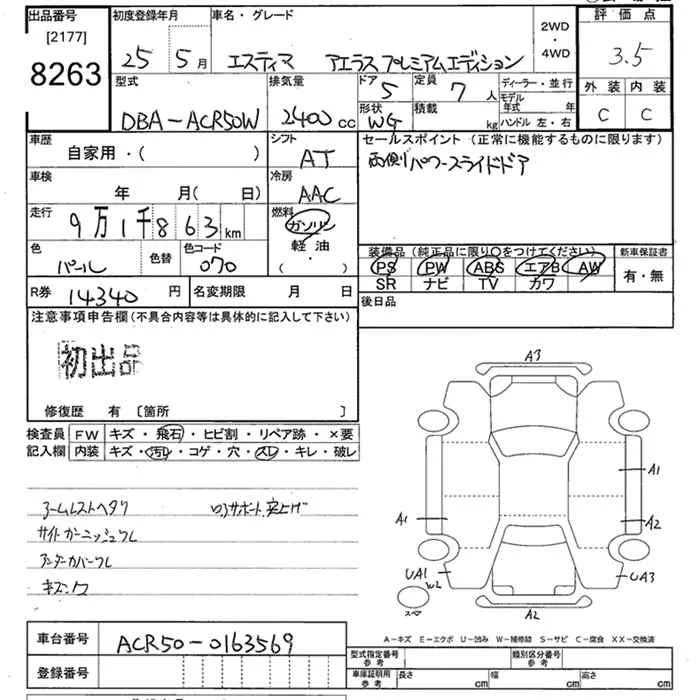 出品番号 初度登録年月 車名・グレード 2WD・4WD 評価点
[2177]
8263
25 5月 エスティマ アエラス プレミアムエディション 3.5
型式 排気量 ドア 定員 ディーラー・並行 外装 内装
DBA-ACR50W 2400cc 5 7人 モデル年式 年 C C
形状 積載 ハンドル 左・右
WG kg
車歴 シフト セールスポイント (正常に機能するものに限ります)
自家用・( ) AT 両側パワースライドドア
車検 冷房
年 月(日) AAC
走行 燃料
9万1千863km ガソリン
軽油
・
( )
色 色替 色コード 装備品 (純正品に限り○をつけてください) 新車保証書
パール 070 PS PW ABS エアB AW 有・無
SR ナビ TV カワ
R券 14340円 名変期限 月 日 後日品
注意事項申告欄(不具合内容等は具体的に記入して下さい)
初出品
修復歴 有 [箇所 ]
検査員 FW キズ・飛石・ヒビ割・リペア跡・×要
記入欄 内装 キズ・汚レ・コゲ・穴・スレ・キレ・破レ
アームレストヘタリ ロアサポート突上げ
サイドガーニッシュワレ
アンダーカバーワレ
キズ・ワ
A3
A1
A1 A2
UA1 W2 UA3
スペア A2
A-キズ E-エクボ U-凹み W-補修跡 S-サビ C-腐食 XX-交換済
車台番号 ACR50-0163569
登録番号
型式指定番号 参考 類別区分番号 参考
車庫証明用 参考 長さ cm 幅 cm 高さ cm